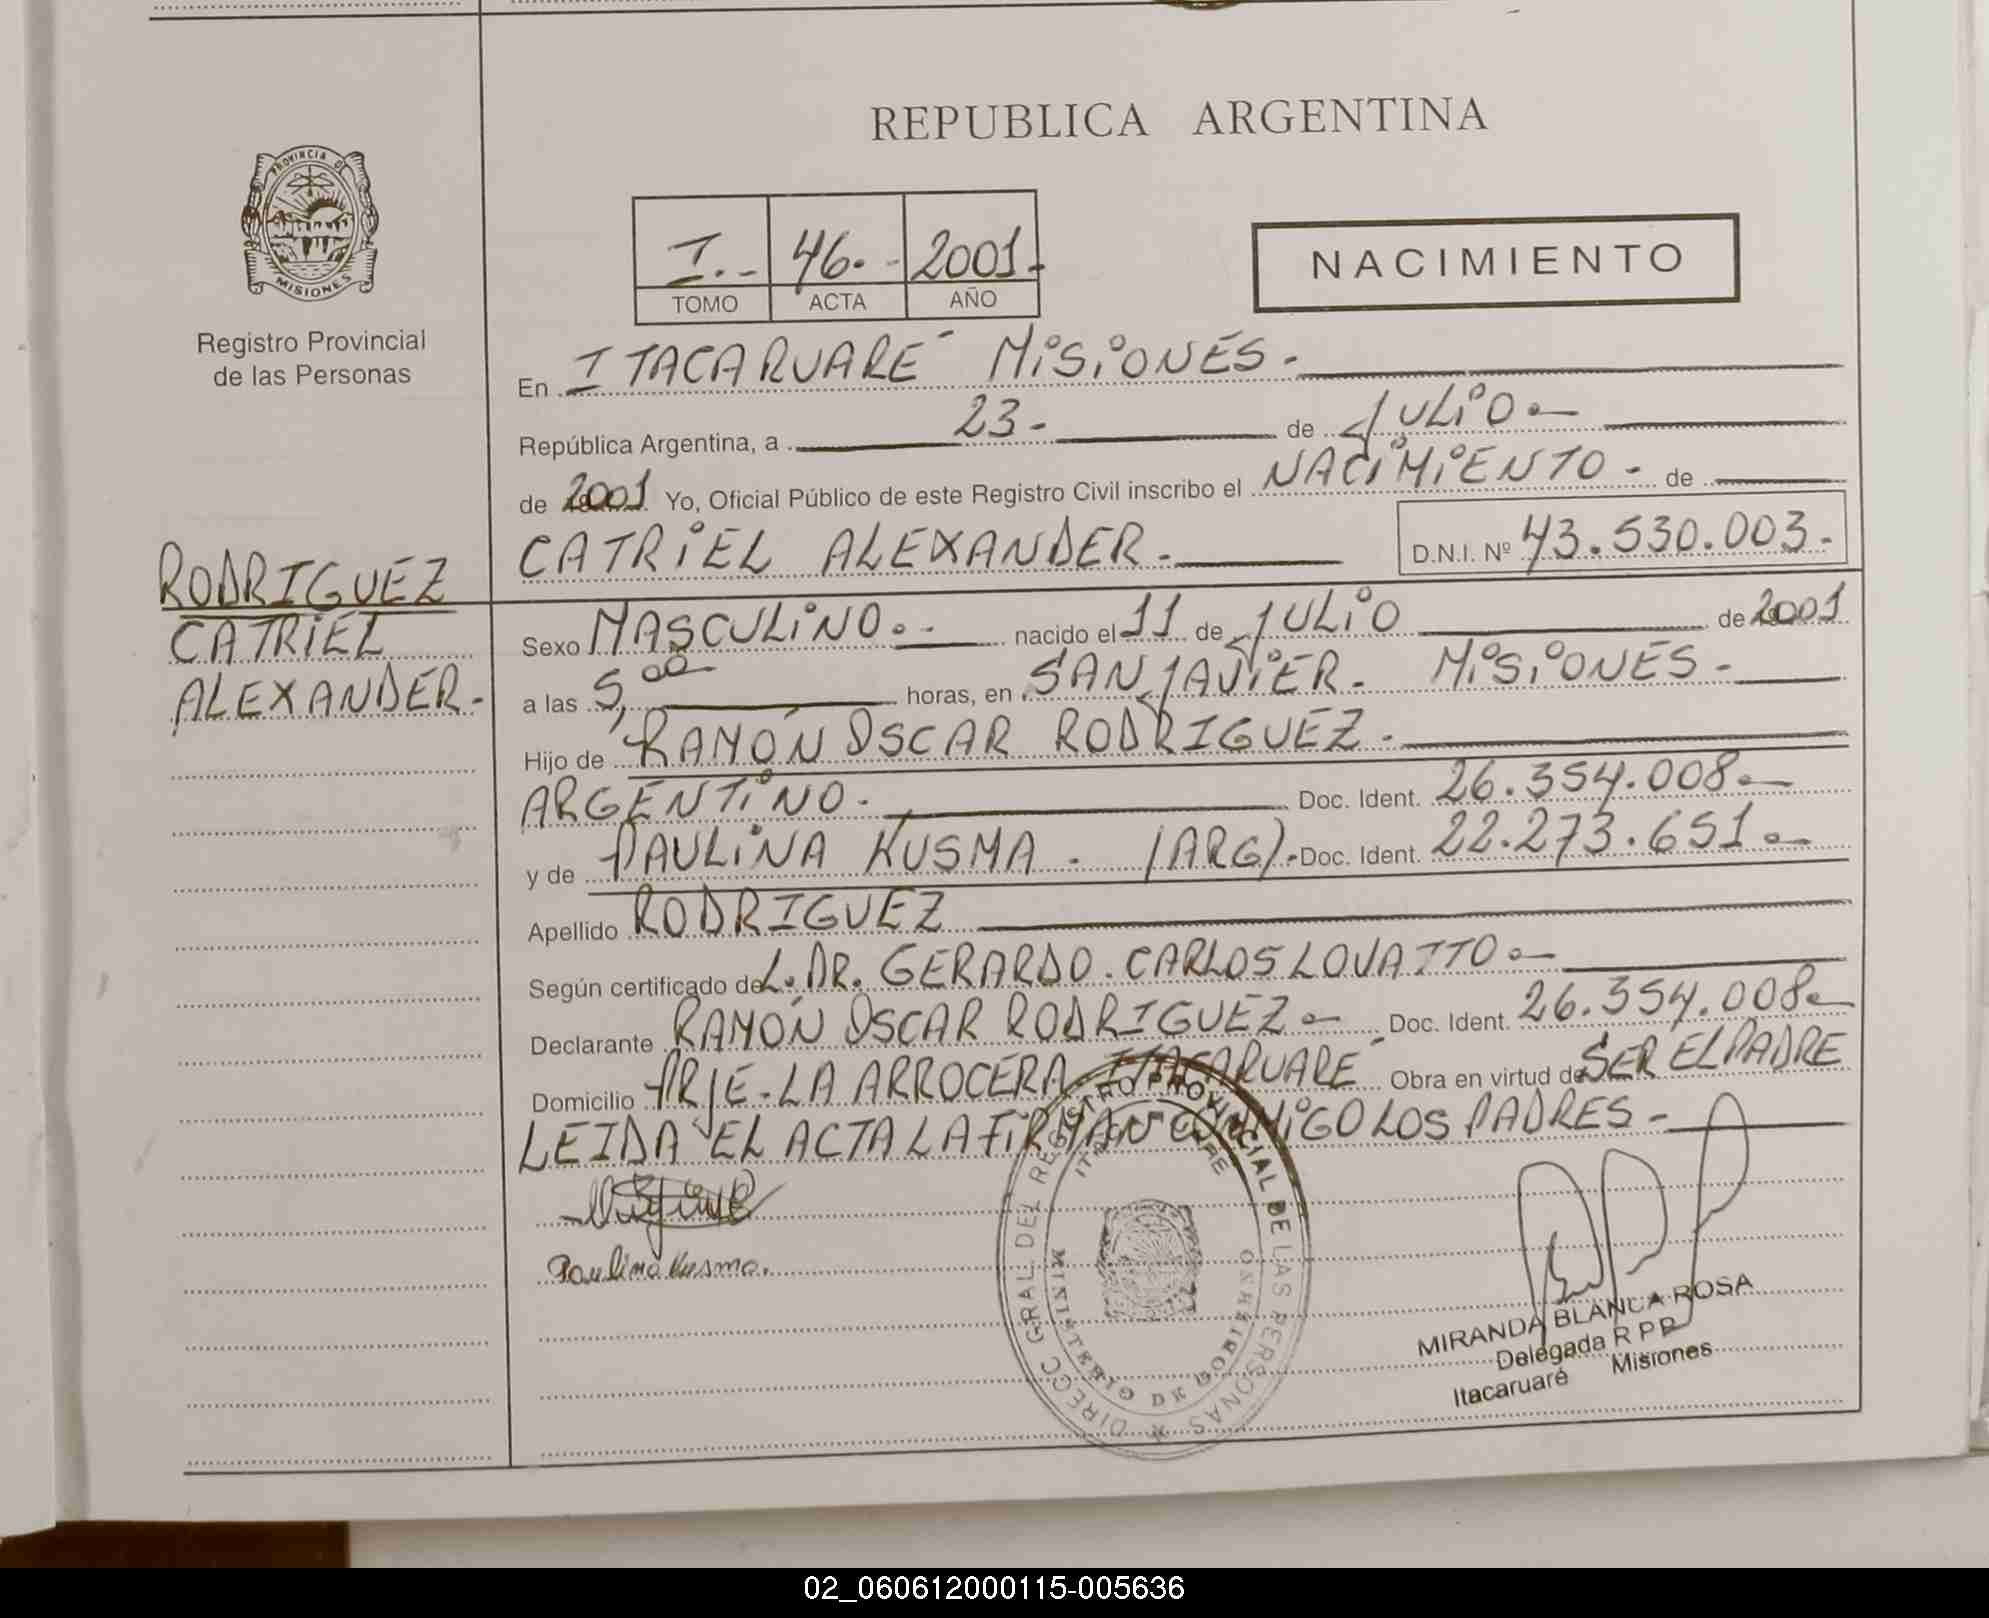 REPUBLICA ARGENTINA
PROVINCIA DE MISIONES
Registro Provincial
de las Personas
I.- 46.- 2001.-
TOMO ACTA AÑO
NACIMIENTO
En ITACARUARE´ MISIONES.-
República Argentina, a 23.- de JULIO.-
de 2001 Yo, Oficial Público de este Registro Civil inscribo el NACIMIENTO.- de
CATRIEL ALEXANDER.- D.N.I. Nº 43.530.003.-
RODRIGUEZ
CATRIEL
ALEXANDER.-
Sexo MASCULINO.- nacido el 11 de JULIO de 2001
a las 5,00 horas, en SAN JAVIER. MISIONES.-
Hijo de RAMÓN OSCAR RODRIGUEZ.-
ARGENTINO.- Doc. Ident. 26.354.008.-
y de PAULINA KUSMA. (ARG).- Doc. Ident. 22.273.651.-
Apellido RODRIGUEZ
Según certificado de L. DR. GERARDO. CARLOS LOVATTO.-
Declarante RAMÓN OSCAR RODRIGUEZ.- Doc. Ident. 26.354.008.-
Domicilio PRJE-LA ARROCERA. ITACARUARE´ Obra en virtud de SER EL PADRE
LEIDA EL ACTA LA FIRMAN CONMIGO LOS PADRES.-
Paulina Kusma.
DIRECC GRAL DEL REGISTRO PROVINCIAL DE LAS PERSONAS
MINISTERIO DE GOBIERNO
MIRANDA BLANCA ROSA
Delegada R P P
Itacaruaré Misiones
02_060612000115-005636